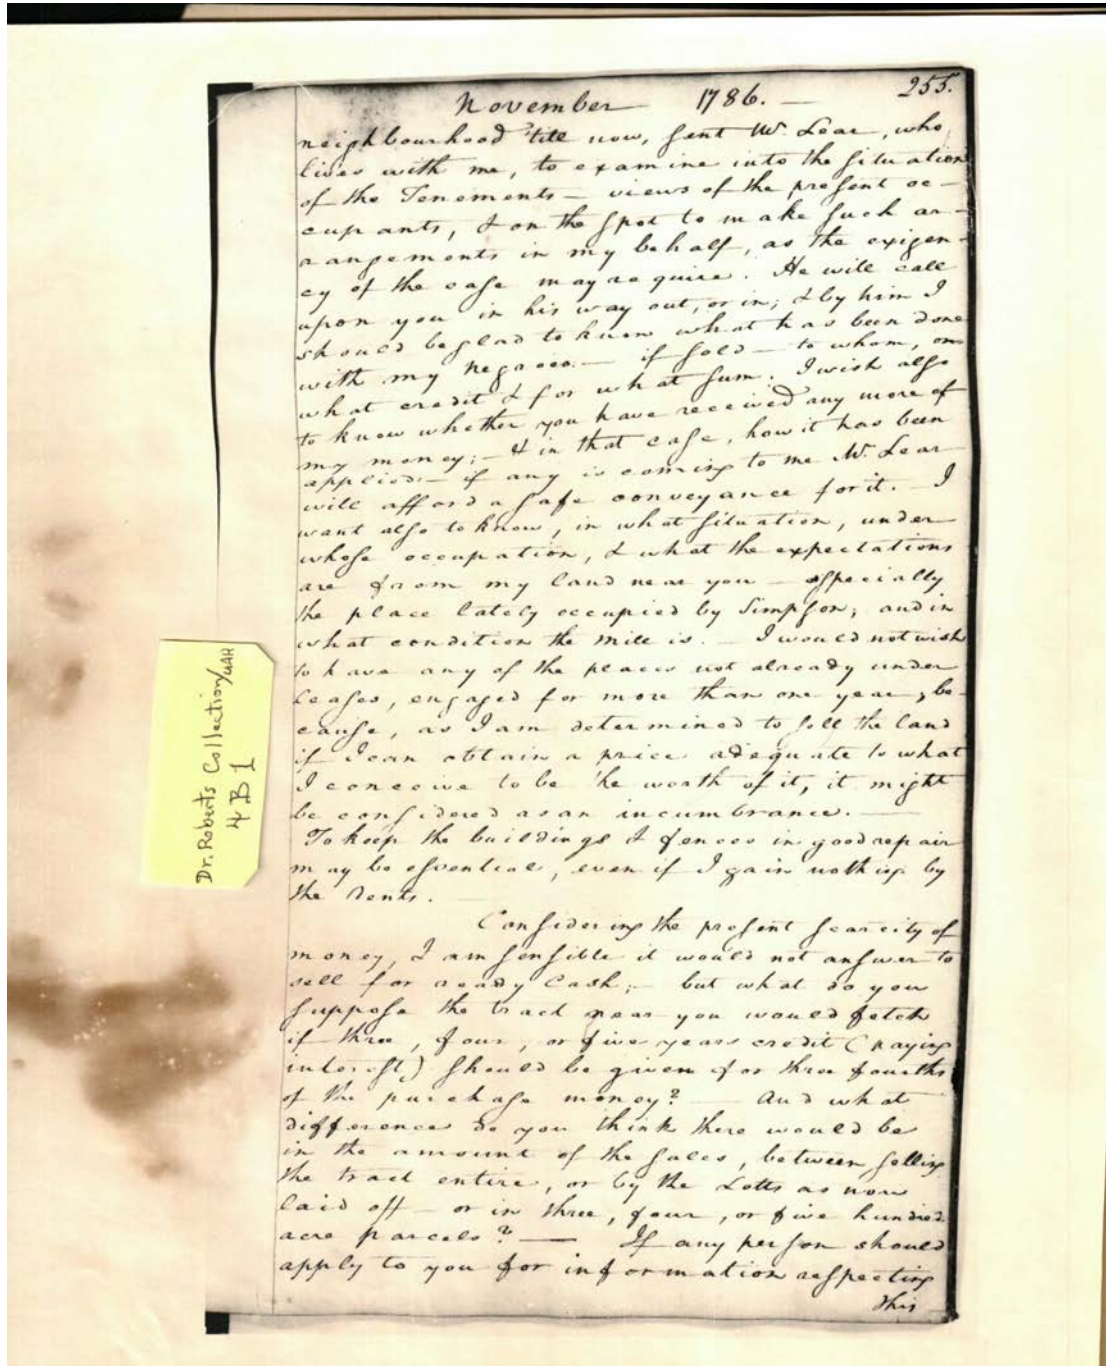 November 1786. — 255.
neighbourhood 'till now, sent Mr. Lear, who
lives with me, to examine into the situation
of the Tenements — views of the present oc-
cupants, & on the spot to make such ar-
rangements in my behalf, as the exigen-
cy of the case may require. He will call
upon you in his way out, or in; & by him I
should be glad to know what has been done
with my negroes — if sold — to whom, on
what credit & for what sum. I wish also
to know whether you have received any more of
my money; — & in that case, how it has been
applied: — if any is coming to me Mr. Lear
will afford a safe conveyance for it. — I
want also to know, in what situation, under
whose occupation, & what the expectations
are from my land near you — especially
the place lately occupied by Simpson; and in
what condition the mill is. — I would not wish
to have any of the places not already under
leases, engaged for more than one year, be-
cause, as I am determined to sell the land
if I can obtain a price adequate to what
I conceive to be the worth of it, it might
be considered as an incumbrance. —
To keep the buildings & fences in good repair
may be essential, even if I gain nothing by
the Rents. —
Considering the present scarcity of
money, I am sensible it would not answer to
sell for ready Cash; — but what do you
suppose the tract near you would fetch
if three, four, or five years credit (paying
interest) should be given for three fourths
of the purchase money? — And what
difference do you think there would be
in the amount of the sales, between selling
the tract entire, or by the Lotts as now
laid off — or in three, four, or five hundred
acre parcels? — If any person should
apply to you for information respecting
this
Dr. Roberts Collection/UAR
4 B 1